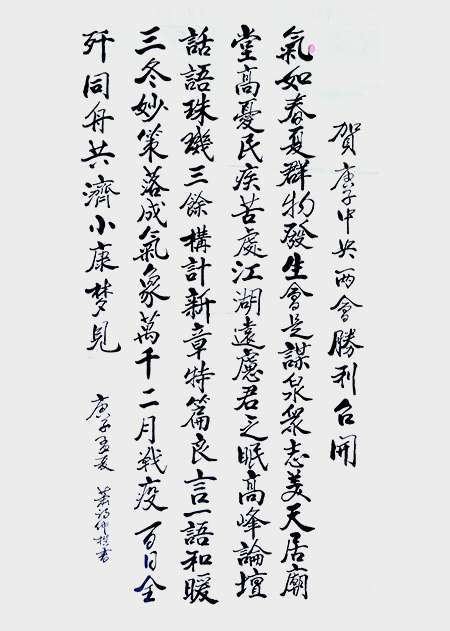 賀庚子中央两會勝利召開
氣如春夏群物發生會是謀泉衆志美天居廟
堂高憂民疾苦處江湖遠慮君之眠高峰論壇
話語珠璣三餘構計新章特篇良言一語和暖
三冬妙策落成氣象萬千二月戰疫百日全
歼同舟共濟小康梦見
庚子孟夏